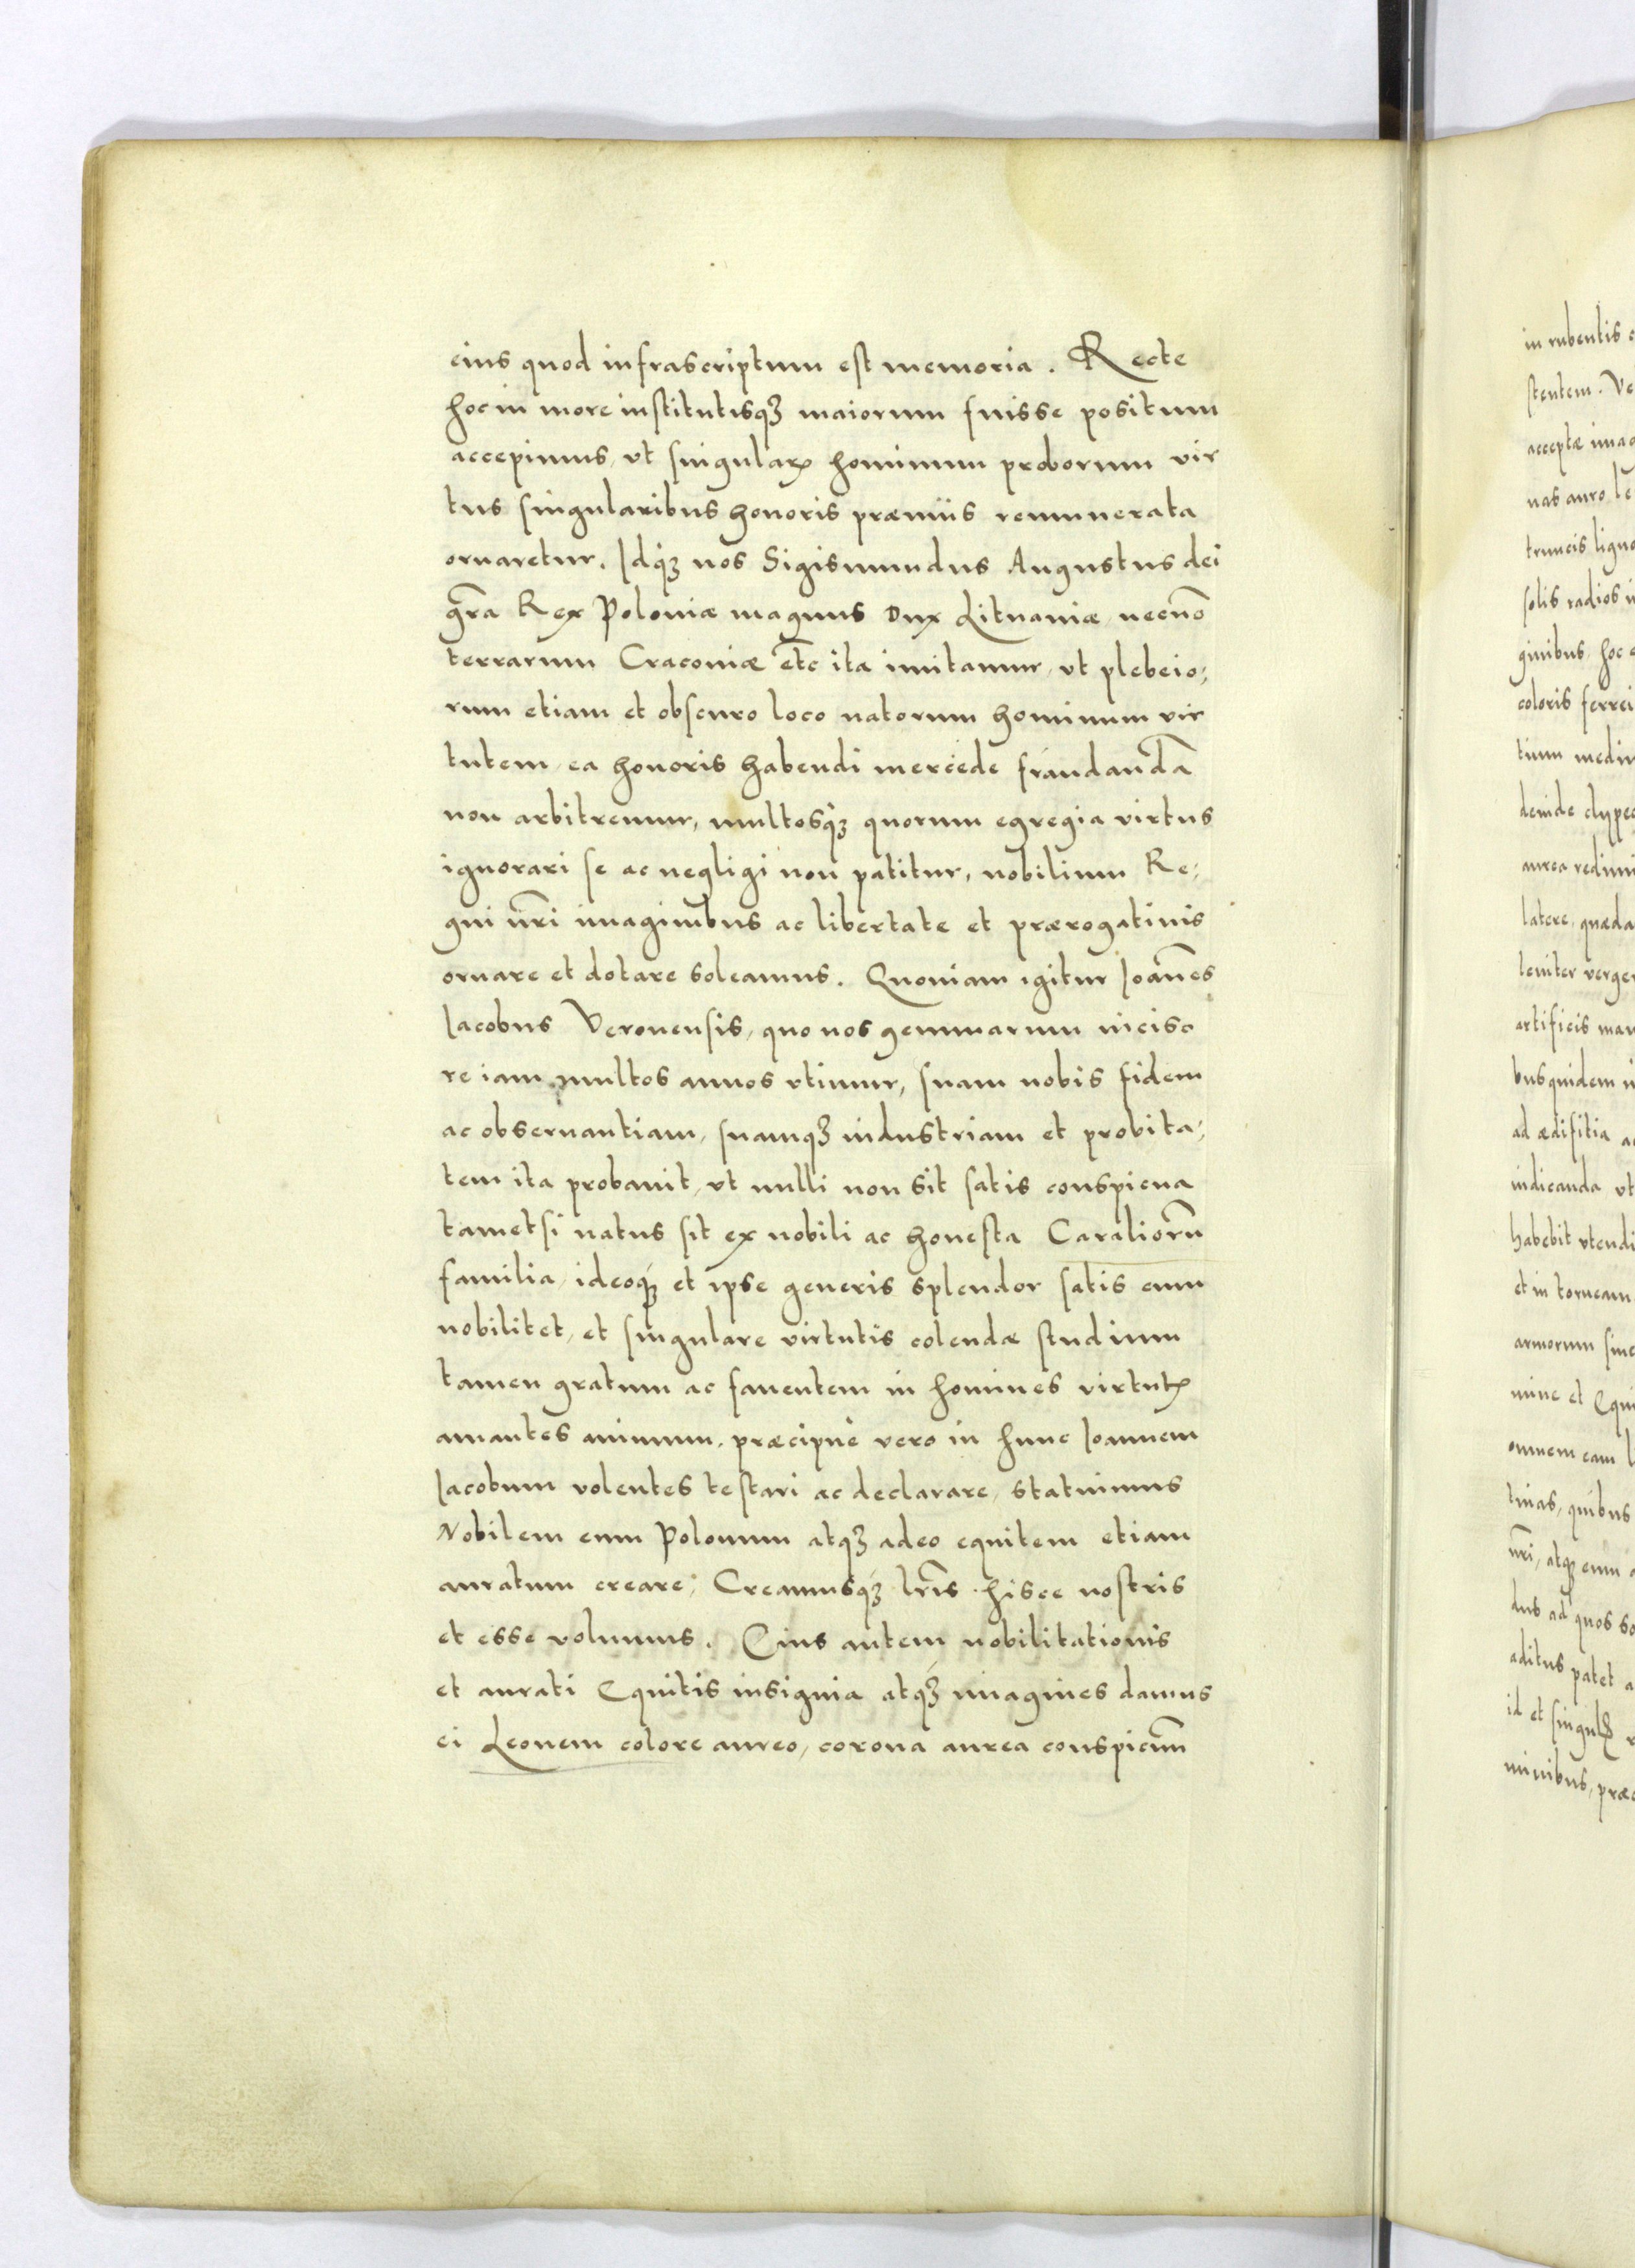 eius quod infrascriptum est memoria. Recte
hoc in more institutisqꝫ maiorum fuisse positum
accepimus, ut singularꝭ hominum proborum vir
tus singularibus honoris præmiis remunerata
ornaretur. Idqꝫ nos Sigismundus Augustus dei
gr̃a Rex Poloniæ magnus Dux Lituaniæ, necnõ
terrarum Cracoviæ etc̃ ita imitamur, vt plebeio,
rum etiam et obscuro loco natorum hominum vir
tutem, ea honoris habendi mercede fraudandã
non arbitremur, multosqꝫ quorum egregia virtus
ignorari se ac negligi non patitur, nobilium Re,
gni ñri imaginibus ac libertate et prærogatiuis
ornare et dotare soleamus. Quoniam igitur Ioañes
Iacobus Veronensis, quo nos gemmarum inciso
re iam multos annos vtimur, suam nobis fidem
ac obseruantiam, suamqꝫ industriam et probita,
tem ita probauit, vt nulli non sit satis conspicua
tametsi natus sit ex nobili ac honesta Caraliorũ
familia, ideoqꝫ et ipse generis splendor satis eum
nobilitet, et singulare virtutis colendæ studium
tamen gratum ac fauentem in homines virtutꝭ
amantes animum, præcipuè vero in hunc Ioannem
Iacobum volentes testari ac declarare, statuimus
Nobilem eum Polonum atqꝫ adeo equitem etiam
auratum creare, Creamusqꝫ lr̃is hisce nostris
et esse volumus. Eius autem nobilitationis
et aurati Equitis insignia atqꝫ imagines damus
ei Leonem colore aureo, corona aurea conspicuũ
in rubentis
stentem. Ve
acceptæ imag
nas auro, le
truncis ligno
solis radios i
ginibus, hoc
coloris ferrei
tium mediu
deinde clypeo
aurea redimi
latere, quæda
leniter verge
artificis man
bus quidem i
ad ædifitia a
indicanda vt
habebit vtendi
et in torneam
armorum sine
mine et Equi
omnem eam l
tinas, quibus
ñri, atqꝫ eum
dus ad quos so
aditus patet a
id et
minibus, præ